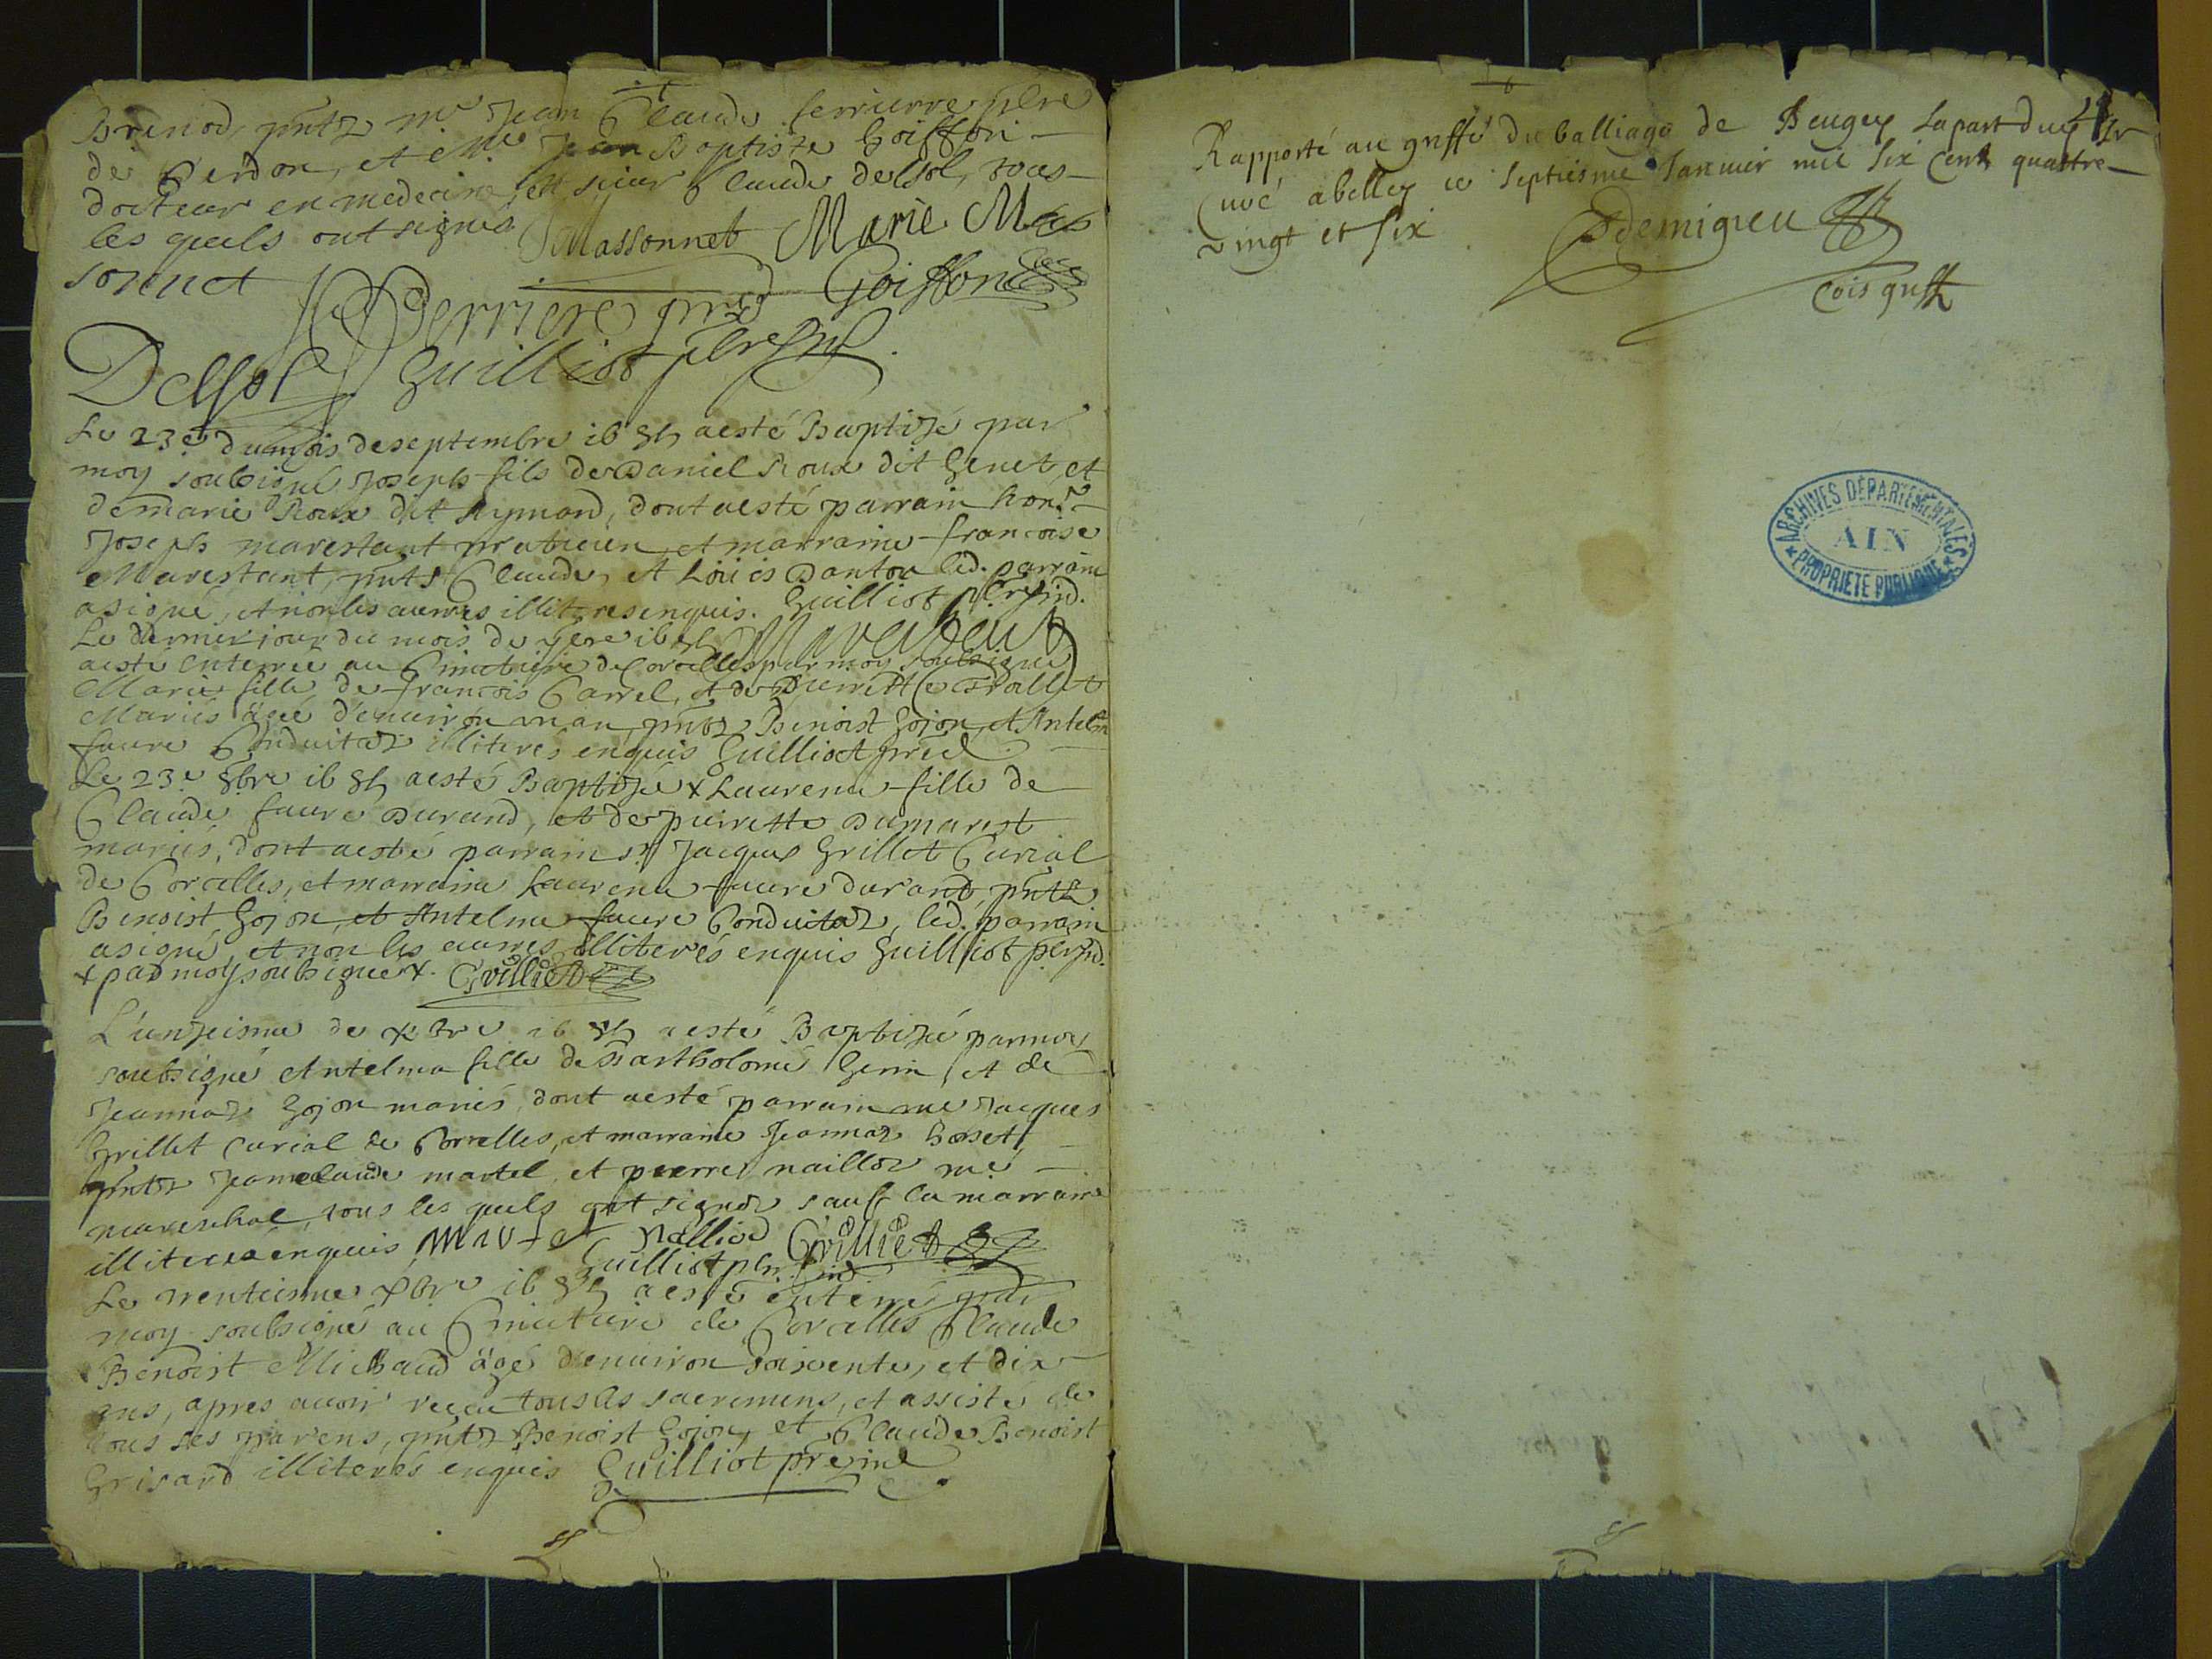 Brenod, pntz mre Jean Claude ferrierre pbre
de Cerdon, et Mre Jean Baptiste Goiffon
docteur en medecine, et sieur Claude delsol, tous
les quels ont signés Massonnet Marie Mas
sonnet
Derriere pnd Goiffon
Delsol Guilliot pbre
Le 23e du mois de septembre 1685 a esté Baptizé par
moy soubsigné Joseph fils de Daniel Roux dit Genet, et
de marie Roux dit Aymond, dont a esté parrain hon.
Joseph marestant praticien, et marraine francoise
Marestant, pnts Claude, et Loüis Danton led. parrain
a signé, et non les autres illiterés enquis. Guilliot
Le dernier jour du mois de 7bre 1685 Marestant
a esté enterrée au Cimetiere de Corcelles par moy soubsigné
Marie fille de francois Carrel, et de pierrette
Mariés âgée d'environ un an, pntz Benoist Gojon, et Antelme
faure Conduitaz illiterés enquis Guilliot
Le 23e 8bre 1685 a esté Baptizée x Laurence fille de
Claude faure Durand, et de pierrette Dumarest
mariés, dont a esté parrain sr Jacques Grillet Curial
de Corcelles, et marraine Laurence faure durand, pntz
Benoist Gojon, et Antelme faure Conduitaz, led. parrain
a signé, et non les autres illiterés enquis Guilliot
x par moy soubsigné x. Grilliet
L'unzeisme de xbre 1685 a esté Baptizée par moy
soubsigné Antelma fille de Bartholomé Genin, et de
Jeannaz Gojon mariés, dont a esté parrain me Jacques
Grillet curial de Corcelles, et marraine Jeannaz
pntz Jeanclaude martel, et pierre naillod me
mareschal, tous les quels ont signéz sauf la marraine
illiterée enquis Martel Nalliod Grilliet
Guilliot
Le trentiesme xbre 1685 a esté enterré par
moy soubsigné au Cimetiere de Corcelles Claude
Benoist Michaud âgé d'environ soixente, et dix
ans, apres avoir receu tous les sacremens, et assisté de
tous ses parens, pntz Benoist Gojon, et Claude Benoist
Grisard illiterés enquis Guilliot
Rapporté au greffe du balliage de Beugey La part du Sr
Curé abelley ce Septiesme Janvier mil six cent quattre
vingt et six Demigieu
ARCHIVES DÉPARTEMENTALES
AIN
PROPRIETE PUBLIQUE